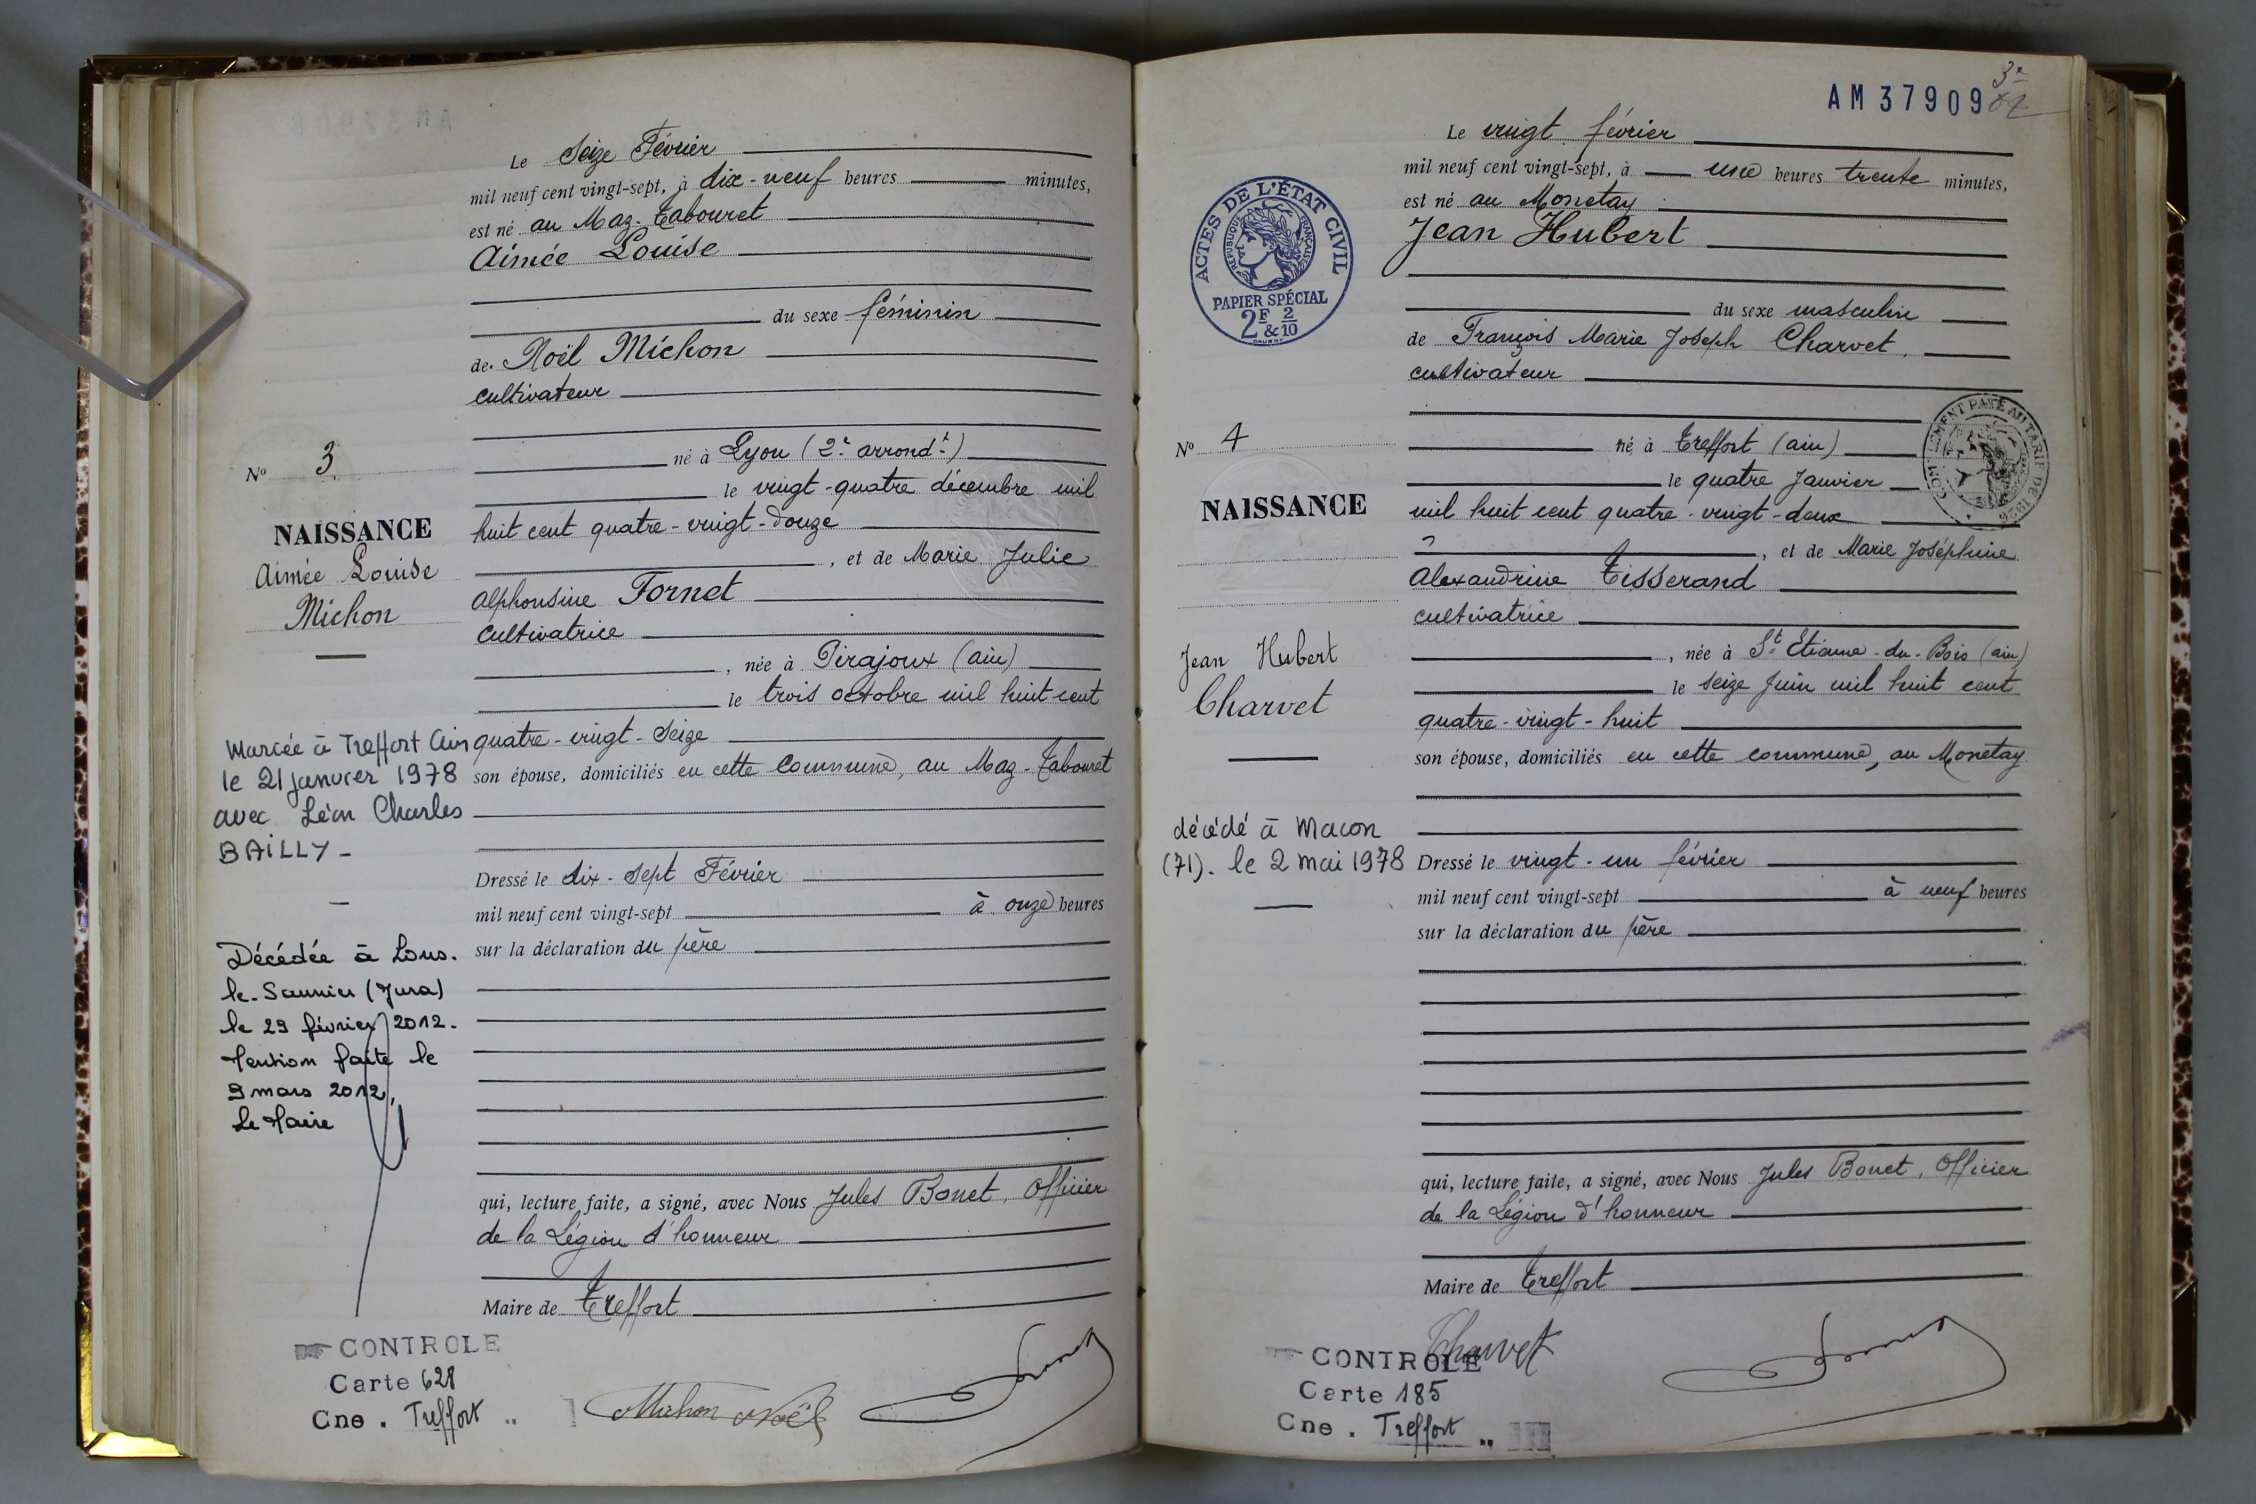 Le seize Février
mil neuf cent vingt-sept, à dix-neuf heures minutes,
est né au Maz-Tabouret
Aimée Louise
du sexe féminin
de Noël Michon
cultivateur
né à Lyon (2e arrondt)
le vingt-quatre décembre mil
huit cent quatre-vingt-douze
, et de Marie Julie
Alphonsine Fornet
cultivatrice
, née à Pirajoux (ain)
le trois octobre mil huit cent
quatre-vingt-seize
son épouse, domiciliés en cette commune, au Maz-Tabouret
Dressé le dix-sept Février
mil neuf cent vingt-sept à onze heures
sur la déclaration du père
qui, lecture faite, a signé, avec Nous Jules Bonet, Officier
de la Légion d'honneur
Maire de Treffort
Michon Noël
No 3
NAISSANCE
Aimée Louise
Michon
Mariée à Treffort Ain
le 21 janvier 1978
avec Léon Charles
BAILLY -
Décédée à Lons-
le-Saunier (Jura)
le 29 février 2012.
Mention faite le
9 mars 2012,
Le Maire
CONTROLE
Carte 628
Cne. Treffort
AM37909
Le vingt février
mil neuf cent vingt-sept, à une heures trente minutes,
est né au Monetay
Jean Hubert
du sexe masculin
de François Marie Joseph Charvet,
cultivateur
né à Treffort (ain)
le quatre Janvier
mil huit cent quatre-vingt-deux
, et de Marie Joséphine
Alexandrine Tisserand
cultivatrice
, née à St Etienne-du-Bois (ain)
le seize Juin mil huit cent
quatre-vingt-huit
son épouse, domiciliés en cette commune, au Monetay
Dressé le vingt-un février
mil neuf cent vingt-sept à neuf heures
sur la déclaration du père
qui, lecture faite, a signé, avec Nous Jules Bonet, Officier
de la Légion d'honneur
Maire de Treffort
Charvet
ACTES DE L'ÉTAT CIVIL
RÉPUBLIQUE FRANÇAISE
PAPIER SPÉCIAL
2F & 2/10
No 4
NAISSANCE
Jean Hubert
Charvet
décédé à Macon
(71). le 2 mai 1978
CONTROLE
Carte 185
Cne. Treffort